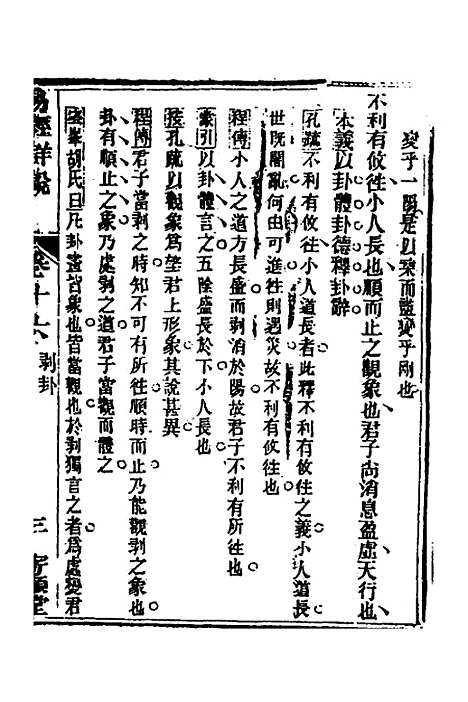 變乎一陽是以柔而盡變乎剛也
不利有攸往小人長也順而止之觀象也君子尚消息盈虛天行也
本義以卦體卦德釋卦辭
孔疏不利有攸往小人道長者此釋不利有攸往之義小人道長
世既闇亂何由可進往則遇災故不利有攸往也
程傳小人之道方長盛而剝消於陽故君子不利有所往也
索引以卦體言之五陰盛長於下小人長也
按孔疏以觀象爲望君上形象其說甚異
程傳君子當剝之時知不可有所往順時而止乃能觀剝之象也
卦有順止之象乃處剝之道君子當觀而體之
峯胡氏曰凡卦畫皆象也皆當觀也於剝獨言之者爲處變君
易經詳說 剝卦 三 寄願堂